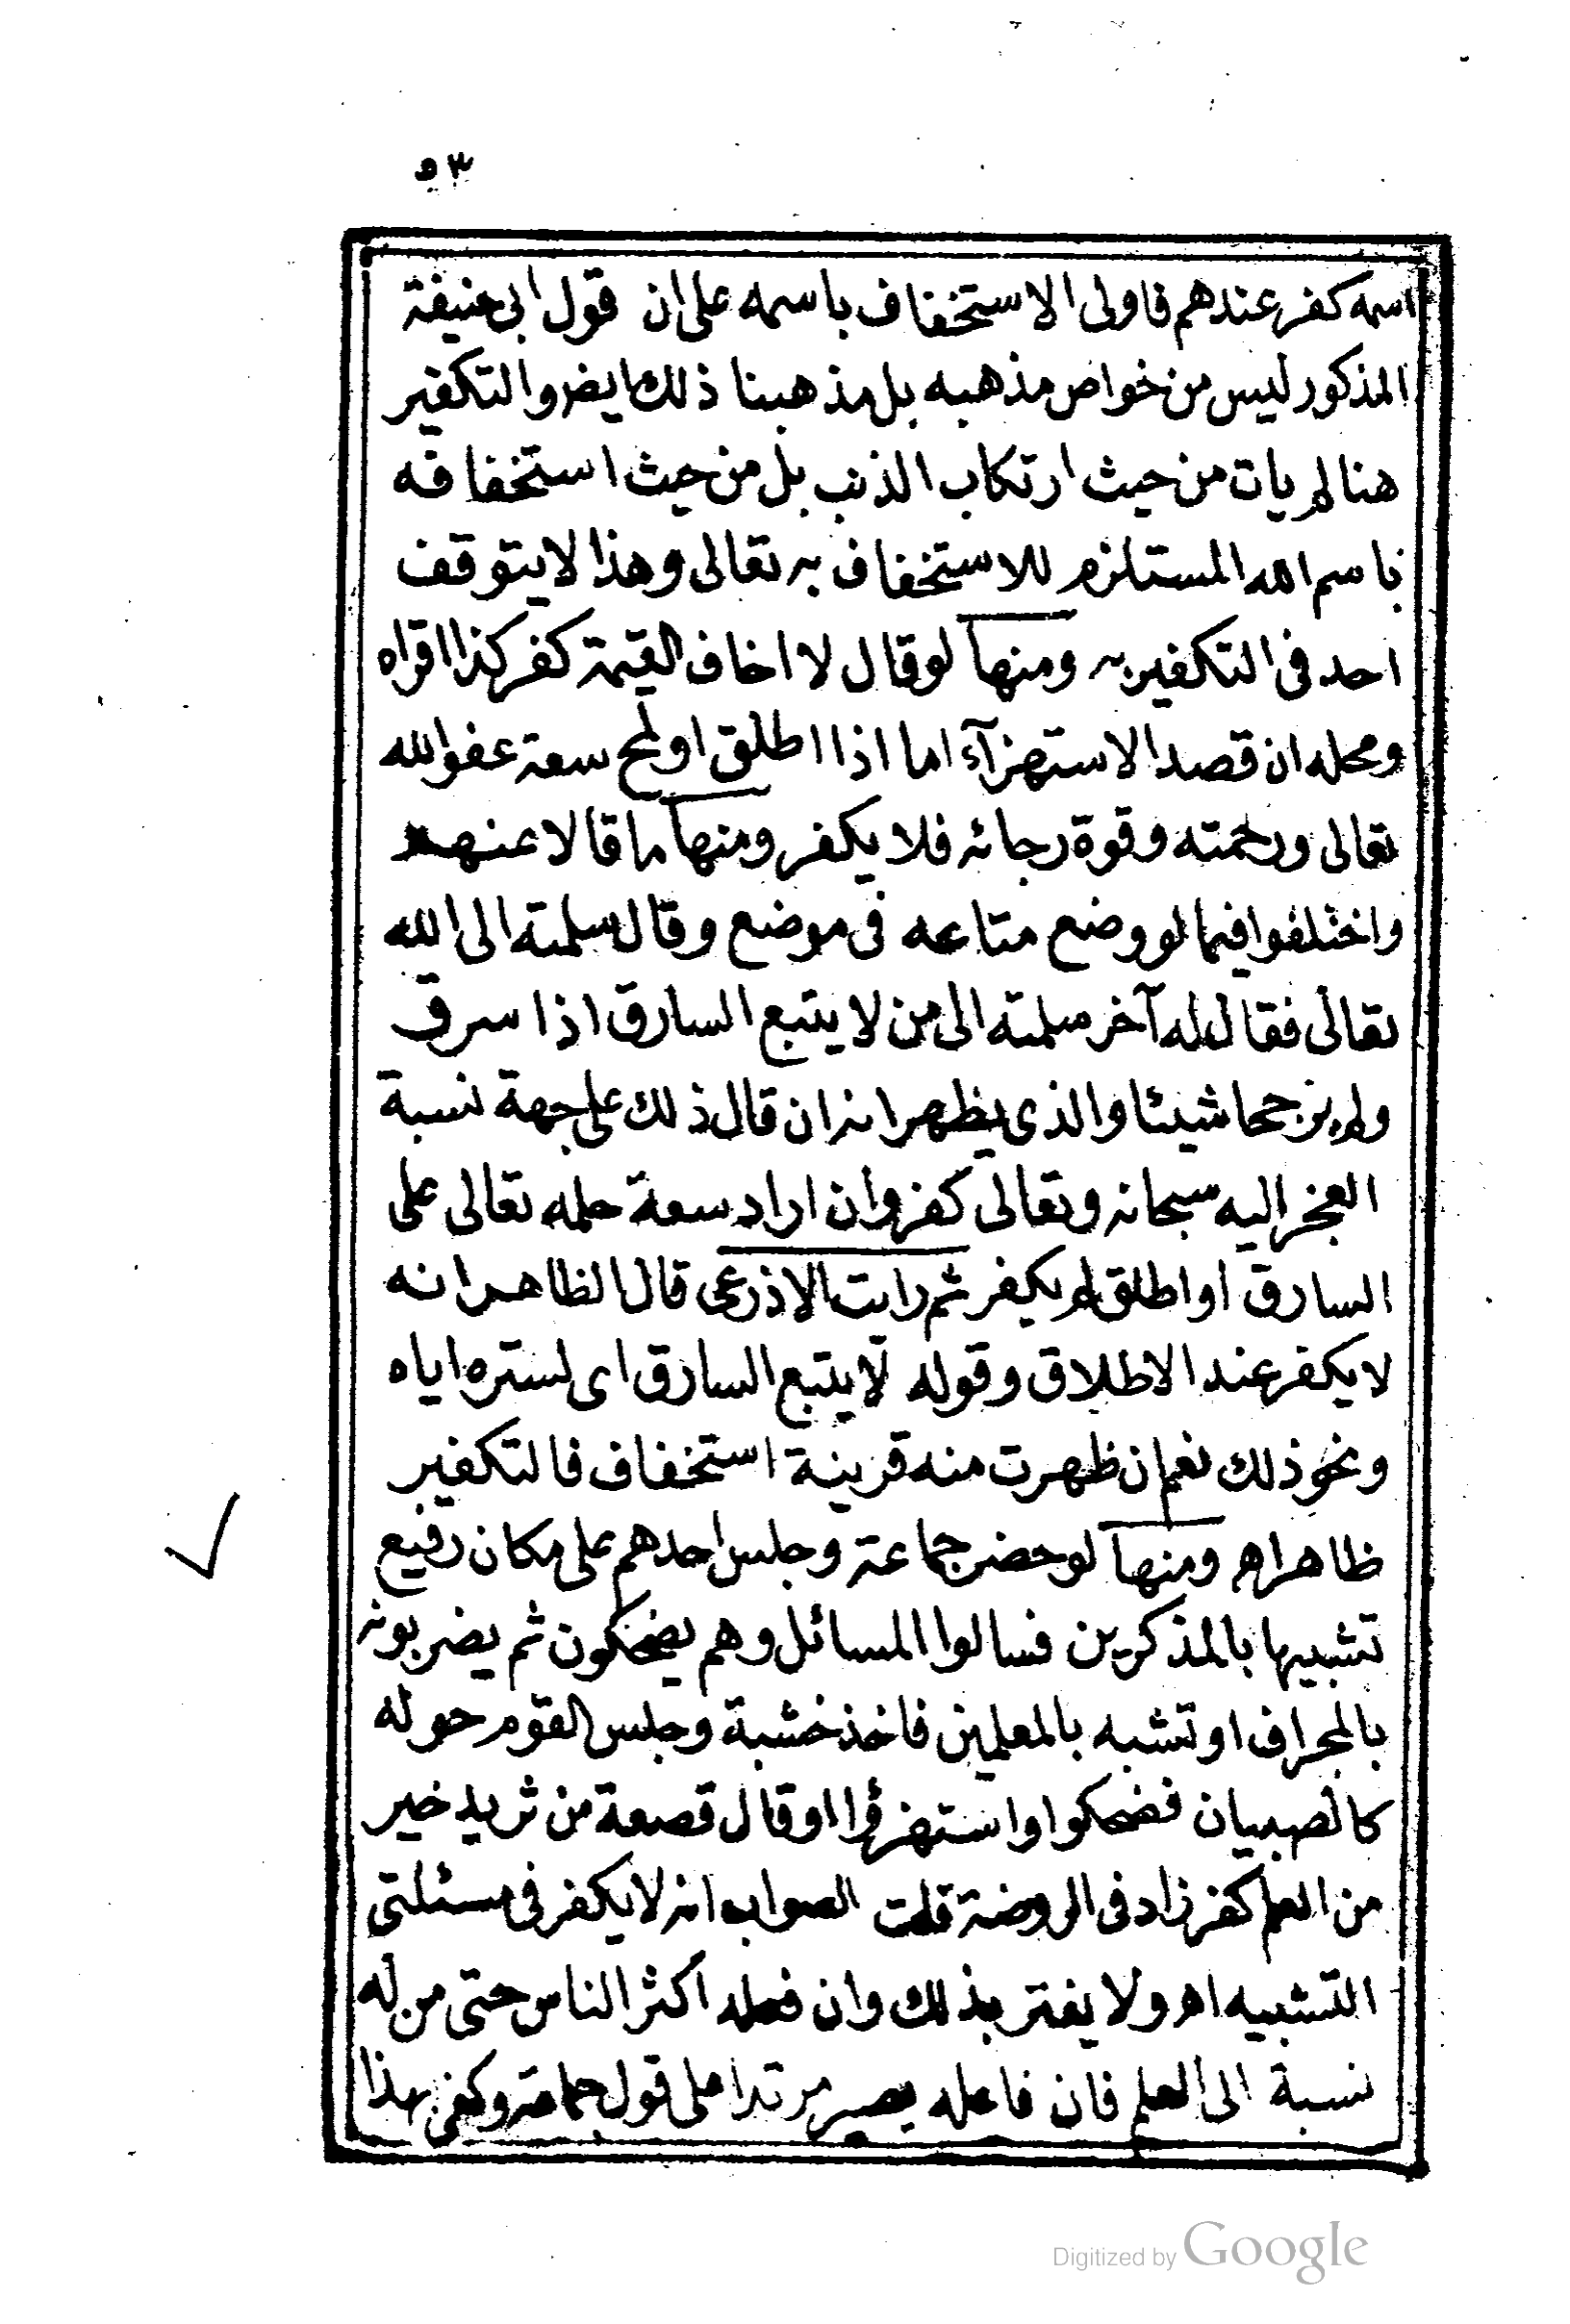 ٥٣
اسمه كفر عندهم فاولى الاستخفاف باسمه على ان قول ابى حنيفة
المذكور ليس من خواص مذهبه بل مذهبنا ذلك ايضر والتكفير
هنا لم يات من حيث ارتكاب الذنب بل من حيث استخفافه
باسم الله المستلزم للاستخفاف به تعالى وهذا لا يتوقف
احد فى التكفير به ومنها لو قال لا اخاف القيمة كفر كذا اقراه
ومحله ان قصد الاستهزآء اما اذا اطلق او لمح سعة عفو الله
تعالى ورحمته وقوة رجائه فلا يكفر ومنها ما قالا عنهم
واختلفوا فيما لو وضع متاعه فى موضع وقال سلمته الى الله
تعالى فقال له آخر سلمته الى من لا يتبع السارق اذا سرق
ولم يرجحا شيئا والذى يظهر انه ان قال ذلك على جهة نسبة
العجز اليه سبحانه وتعالى كفر وان اراد سعة حلمه تعالى على
السارق او اطلق لم يكفر ثم رايت الاذرعى قال الظاهر انه
لا يكفر عند الاطلاق وقوله لا يتبع السارق اى لستره اياه
ونحو ذلك نعم ان ظهرت منه قرينة استخفاف فالتكفير
ظاهر اهـ ومنها لو حضر جماعة وجلس احدهم على مكان رفيع
تشبيها بالمذكرين فسالوا المسائل وهم يضحكون ثم يضربونه
بالمجراف او تشبه بالمعلمين فاخذ خشبة وجلس القوم حوله
كالصبيان فضحكوا واستهزؤا او قال قصعة من ثريد خير
من العلم كفر زاد فى الروضة قلت الصواب انه لا يكفر فى مسئلتى
التشبيه اهـ ولا يغتر بذلك وان فعله اكثر الناس حتى من له
نسبة الى العلم فان فاعله يصير مرتدا على قول جماعة وكفى بهذا
Digitized by Google